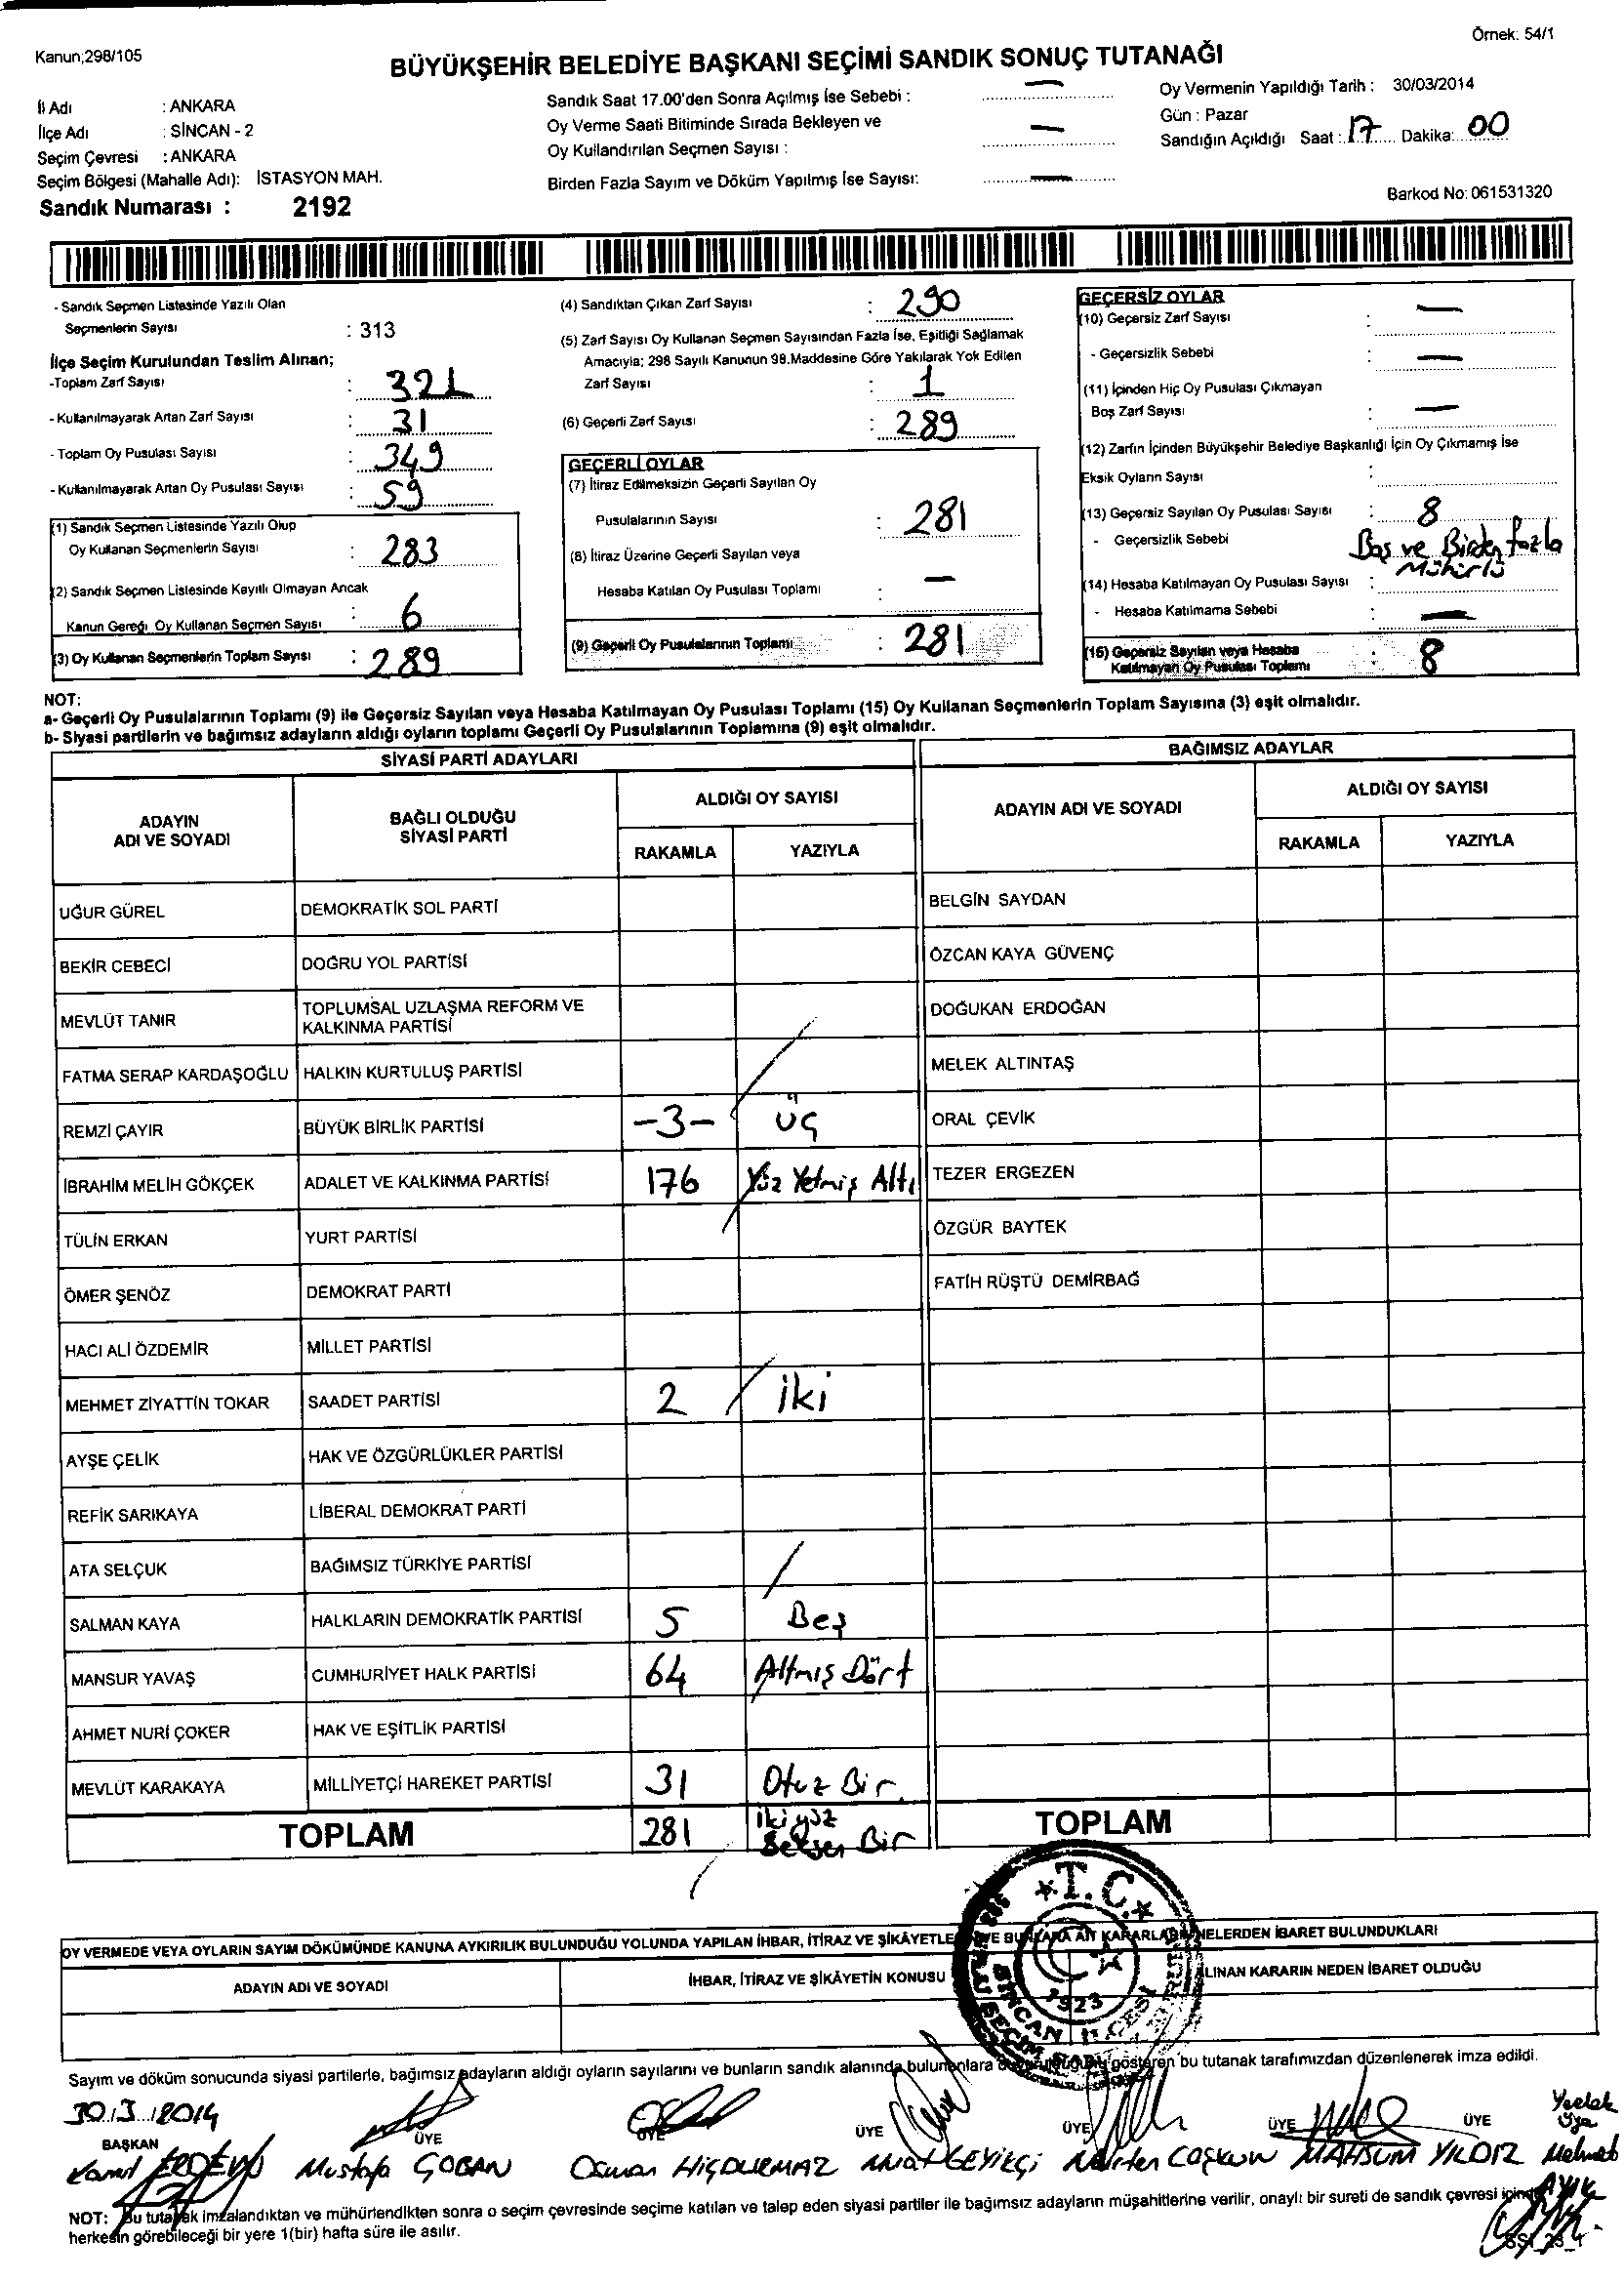 Kanun;298/105
Örnek: 54/1
BÜYÜKŞEHİR BELEDİYE BAŞKANI SEÇİMİ SANDIK SONUÇ TUTANAĞI
İl Adı : ANKARA
İlçe Adı : SİNCAN - 2
Seçim Çevresi : ANKARA
Seçim Bölgesi (Mahalle Adı): İSTASYON MAH.
Sandık Numarası : 2192
Sandık Saat 17.00'den Sonra Açılmış İse Sebebi : —
Oy Verme Saati Bitiminde Sırada Bekleyen ve
Oy Kullandırılan Seçmen Sayısı : —
Birden Fazla Sayım ve Döküm Yapılmış İse Sayısı: —
Oy Vermenin Yapıldığı Tarih : 30/03/2014
Gün : Pazar
Sandığın Açıldığı Saat : 17 Dakika: 00
Barkod No: 061531320
- Sandık Seçmen Listesinde Yazılı Olan
Seçmenlerin Sayısı : 313
İlçe Seçim Kurulundan Teslim Alınan;
-Toplam Zarf Sayısı : 321
- Kullanılmayarak Artan Zarf Sayısı : 31
- Toplam Oy Pusulası Sayısı : 349
- Kullanılmayarak Artan Oy Pusulası Sayısı : 59
(1) Sandık Seçmen Listesinde Yazılı Olup
Oy Kullanan Seçmenlerin Sayısı : 283
(2) Sandık Seçmen Listesinde Kayıtlı Olmayan Ancak
Kanun Gereği Oy Kullanan Seçmen Sayısı : 6
(3) Oy Kullanan Seçmenlerin Toplam Sayısı : 289
(4) Sandıktan Çıkan Zarf Sayısı : 290
(5) Zarf Sayısı Oy Kullanan Seçmen Sayısından Fazla İse, Eşitliği Sağlamak
Amacıyla; 298 Sayılı Kanunun 98.Maddesine Göre Yakılarak Yok Edilen
Zarf Sayısı : 1
(6) Geçerli Zarf Sayısı : 289
GEÇERLİ OYLAR
(7) İtiraz Edilmeksizin Geçerli Sayılan Oy
Pusulalarının Sayısı : 281
(8) İtiraz Üzerine Geçerli Sayılan veya
Hesaba Katılan Oy Pusulası Toplamı : —
(9) Geçerli Oy Pusulalarının Toplamı : 281
GEÇERSİZ OYLAR
(10) Geçersiz Zarf Sayısı : —
- Geçersizlik Sebebi : —
(11) İçinden Hiç Oy Pusulası Çıkmayan
Boş Zarf Sayısı : —
(12) Zarfın İçinden Büyükşehir Belediye Başkanlığı İçin Oy Çıkmamış İse
Eksik Oyların Sayısı :
(13) Geçersiz Sayılan Oy Pusulası Sayısı : 8
- Geçersizlik Sebebi Boş ve Birden fazla
Mühürlü
(14) Hesaba Katılmayan Oy Pusulası Sayısı :
- Hesaba Katılmama Sebebi : —
(15) Geçersiz Sayılan veya Hesaba
Katılmayan Oy Pusulası Toplamı : 8
NOT:
a- Geçerli Oy Pusulalarının Toplamı (9) ile Geçersiz Sayılan veya Hesaba Katılmayan Oy Pusulası Toplamı (15) Oy Kullanan Seçmenlerin Toplam Sayısına (3) eşit olmalıdır.
b- Siyasi partilerin ve bağımsız adayların aldığı oyların toplamı Geçerli Oy Pusulalarının Toplamına (9) eşit olmalıdır.
SİYASİ PARTİ ADAYLARI
ADAYIN
ADI VE SOYADI
BAĞLI OLDUĞU
SİYASİ PARTİ
ALDIĞI OY SAYISI
RAKAMLA YAZIYLA
UĞUR GÜREL DEMOKRATİK SOL PARTİ
BEKİR CEBECİ DOĞRU YOL PARTİSİ
MEVLÜT TANIR TOPLUMSAL UZLAŞMA REFORM VE
KALKINMA PARTİSİ
FATMA SERAP KARDAŞOĞLU HALKIN KURTULUŞ PARTİSİ
REMZİ ÇAYIR BÜYÜK BİRLİK PARTİSİ -3- Üç
İBRAHİM MELİH GÖKÇEK ADALET VE KALKINMA PARTİSİ 176 Yüz Yetmiş Altı
TÜLİN ERKAN YURT PARTİSİ
ÖMER ŞENÖZ DEMOKRAT PARTİ
HACI ALİ ÖZDEMİR MİLLET PARTİSİ
MEHMET ZİYATTİN TOKAR SAADET PARTİSİ 2 İki
AYŞE ÇELİK HAK VE ÖZGÜRLÜKLER PARTİSİ
REFİK SARIKAYA LİBERAL DEMOKRAT PARTİ
ATA SELÇUK BAĞIMSIZ TÜRKİYE PARTİSİ
SALMAN KAYA HALKLARIN DEMOKRATİK PARTİSİ 5 Beş
MANSUR YAVAŞ CUMHURİYET HALK PARTİSİ 64 Altmış Dört
AHMET NURİ ÇOKER HAK VE EŞİTLİK PARTİSİ
MEVLÜT KARAKAYA MİLLİYETÇİ HAREKET PARTİSİ 31 Otuz Bir
TOPLAM 281 İkiyüz
Seksen Bir
BAĞIMSIZ ADAYLAR
ADAYIN ADI VE SOYADI
ALDIĞI OY SAYISI
RAKAMLA YAZIYLA
BELGİN SAYDAN
ÖZCAN KAYA GÜVENÇ
DOĞUKAN ERDOĞAN
MELEK ALTINTAŞ
ORAL ÇEVİK
TEZER ERGEZEN
ÖZGÜR BAYTEK
FATİH RÜŞTÜ DEMİRBAĞ
TOPLAM
T.C.
1923
SİNCAN İLÇESİ
OY VERMEDE VEYA OYLARIN SAYIM DÖKÜMÜNDE KANUNA AYKIRILIK BULUNDUĞU YOLUNDA YAPILAN İHBAR, İTİRAZ VE ŞİKÂYETLE VE BUNLARA AİT KARARLARIN NELERDEN İBARET BULUNDUKLARI
ADAYIN ADI VE SOYADI
İHBAR, İTİRAZ VE ŞİKÂYETİN KONUSU
ALINAN KARARIN NEDEN İBARET OLDUĞU
Sayım ve döküm sonucunda siyasi partilerle, bağımsız adayların aldığı oyların sayılarını ve bunların sandık alanında bulunanlara gösteren bu tutanak tarafımızdan düzenlenerek imza edildi.
30/3/2014
BAŞKAN ÜYE ÜYE ÜYE ÜYE ÜYE ÜYE
Yedek
Üye
Mustafa ÇOBAN
Osman HİÇDURMAZ
Murat GEYİKÇİ
COŞKUN
MAHSUM YILDIZ
Mehmet
AYIK
NOT: Bu tutanak imzalandıktan ve mühürlendikten sonra o seçim çevresinde seçime katılan ve talep eden siyasi partiler ile bağımsız adayların müşahitlerine verilir, onaylı bir sureti de sandık çevresi içinde
herkesin görebileceği bir yere 1(bir) hafta süre ile asılır.